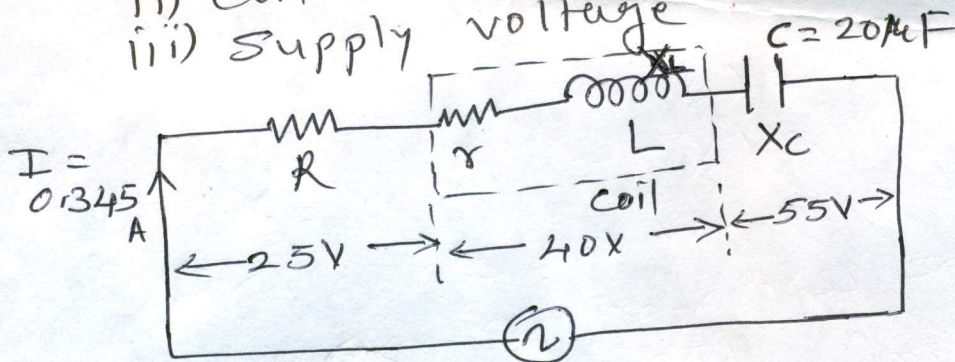 iii) supply voltage
C = 20μF
XL
I =
0.345
A
R
r
L
XC
coil
25V
40X
55V